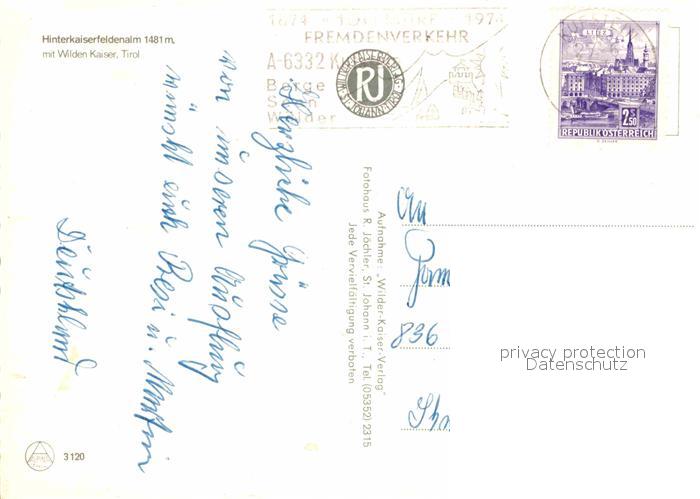 Hinterkaiserfeldenalm 1481 m,
mit Wilden Kaiser, Tirol
1874 · 100 JAHRE · 1974
FREMDENVERKEHR
A-6332 K
Berge
Seen
Wilder
WILDERKAISERVERLAG
RJ
ST. JOHANN-TIROL
LINZ
2 S 50
REPUBLIK ÖSTERREICH
Herzliche Grüsse
von unseren Ausflug
wünscht euch Resi u. Martin
Deutschland
Aufnahme: „Wilder-Kaiser-Verlag"
Fotohaus R. Jöchler, St. Johann i. T., Tel. (05352) 2315
Jede Vervielfältigung verboten
An
Fam
836
privacy protection
Datenschutz
3120